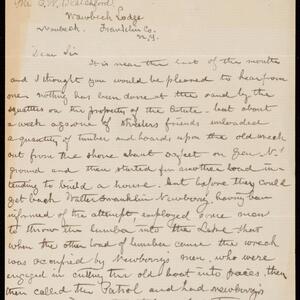 Mr E. W. Blatchford
Wawbeek Lodge
Wawbeek. Franklin Co.
N.Y.
Dear Sir
It is near the last of the month
and I thought you would be pleased to hear from
one nothing has been done at the sand by the
squatters on the property of the Estate. but about
a week ago some of Streeters friends unloaded
a quantity of timber and boards upon the old wreck
out from the shore about 50 feet on Gen. N.
ground and then started for another load in-
tending to build a house. but before they could
get back Walter Franklin Newberry, having been
informed of the attempt, employed some men
to throw the lumber into the Lake that
when the other load of lumber came the wreck
was occupied by Newberrys men, who were
engaged in cutting the old boat into pieces. then
then called the Patrol and had Newberrys